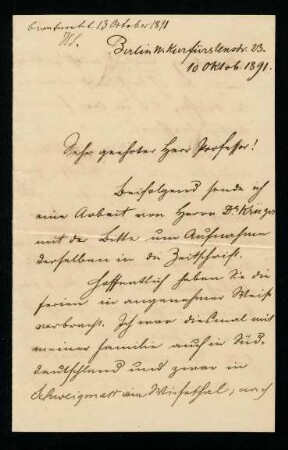 beantwortet 13 Oktober 1891
Berlin W. Kurfürstenstr. 23.
10 Oktob. 1891.
Sehr geehrter Herr Professor!
Beifolgend sende ich
eine Arbeit von Herrn Dr. Krüger
mit der Bitte um Aufnahme
derselben in die Zeitschrift.
Hoffentlich haben Sie die
Ferien in angenehmer Weise
verbracht. Ich war diesmal mit
meiner Familie auch in Süd-
deutschland und zwar in
Schweigmatt im Wiesethal, nach